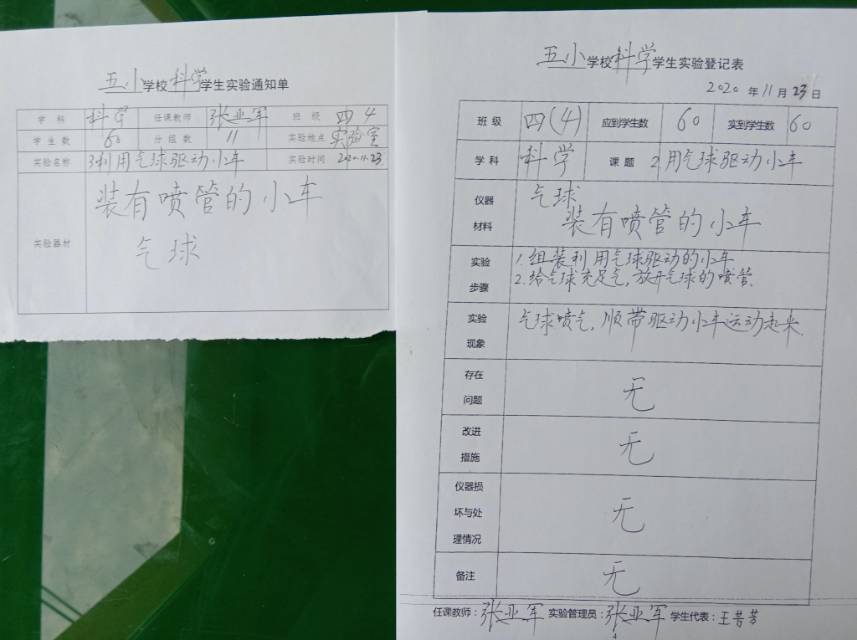 五小学校科学学生实验通知单
学 科 科学 任课教师 张亚军 班 级 四 4
学 生 数 60 分 组 数 11 实验地点 实验室
实验名称 利用气球驱动小车 实验时间 2020.11.23
实验器材 装有喷管的小车
气球
五小学校科学学生实验登记表
2020 年 11 月 23 日
班 级 四(4) 应到学生数 60 实到学生数 60
学 科 科学 课 题 2.用气球驱动小车
仪器
材料
气球
装有喷管的小车
实验
步骤
1.组装利用气球驱动的小车
2.给气球充足气,放开气球的喷管.
实验
现象
气球喷气,顺带驱动小车运动起来.
存在
问题
无
改进
措施
无
仪器损
坏与处
理情况
无
备注
无
任课教师:张亚军 实验管理员:张亚军 学生代表:王芳